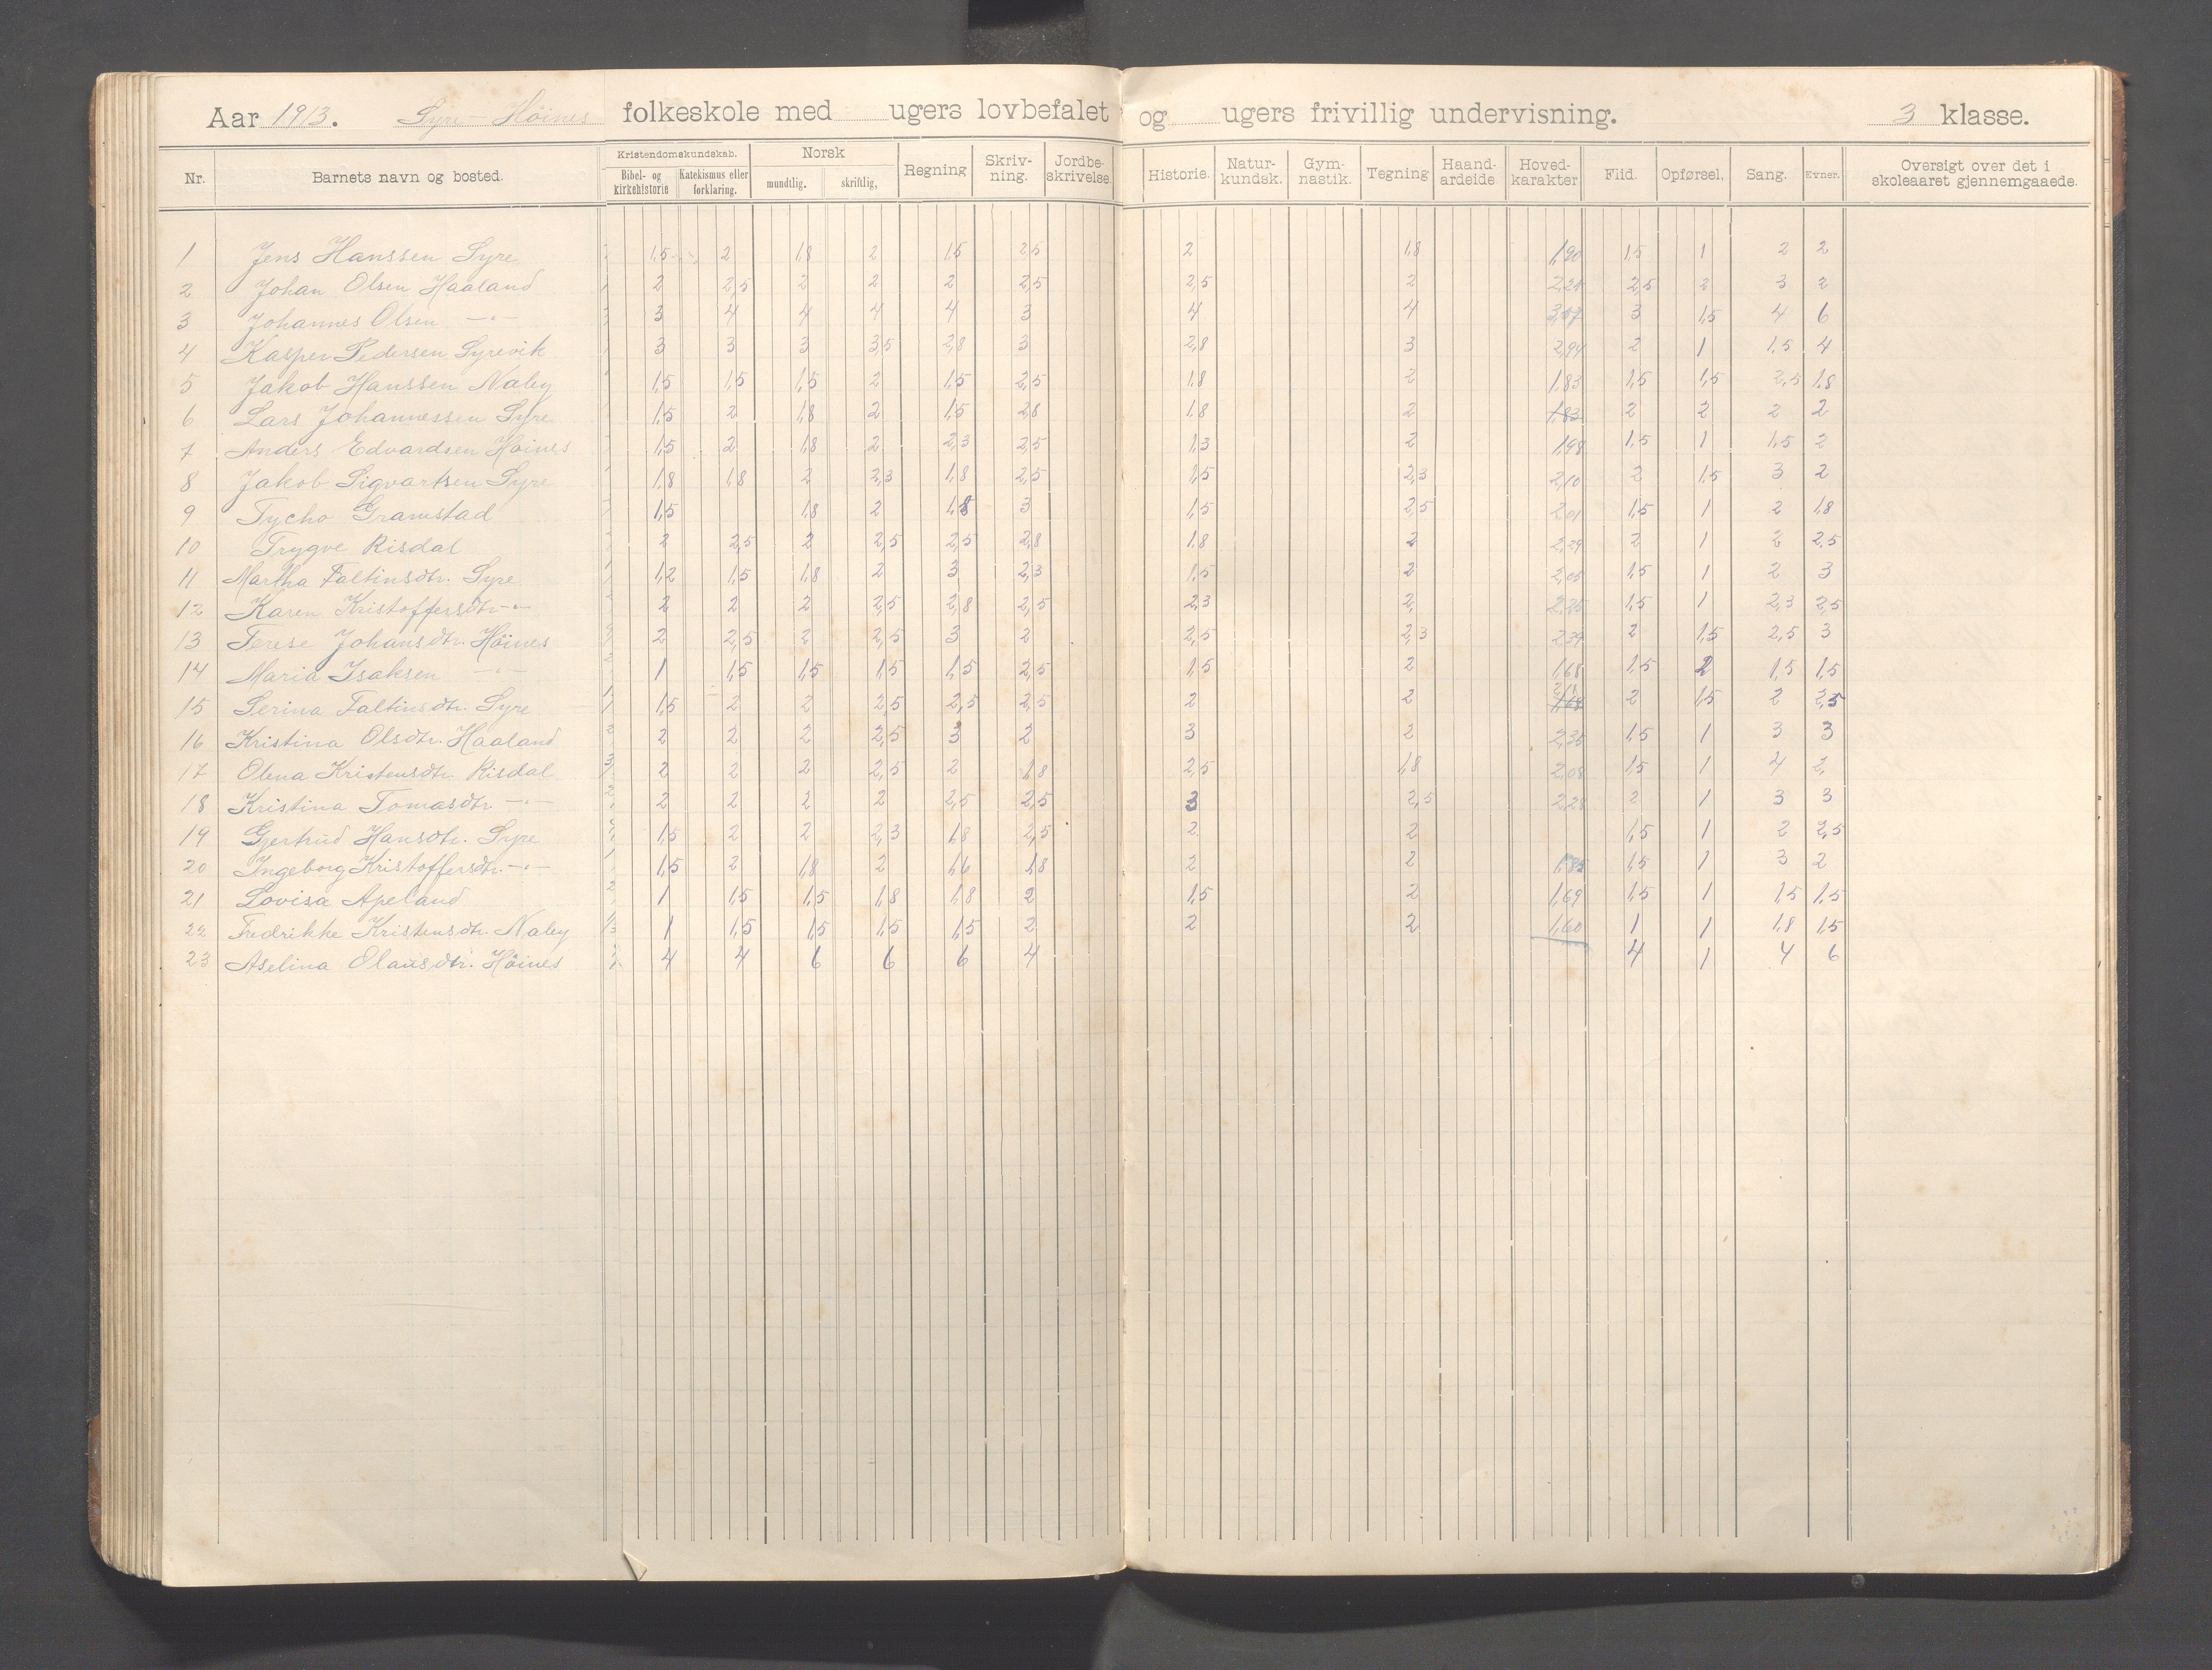 Aar 1913. Syre - Höines folkeskole med ugers lovbefalet og ugers frivillig undervisning. 3 klasse.
Nr. Barnets navn og bosted. Kristendomskundskab. Bibel- og kirkehistorie Katekismus eller forklaring. Norsk mundtlig. skriftlig, Regning Skriv-ning. Jordbe-skrivelse. Historie. Natur-kundsk. Gym-nastik. Tegning Haand-ardeide Hoved-karakter Flid. Opførsel. Sang. Evner. Oversigt over det i skoleaaret gjennemgaaede.
1 Jens Hanssen Syre 1,5 2 1,8 2 1,5 2,5 2 1,8 1,90 1,5 1 2 2
2 Johan Olsen Haaland 2 2,5 2 2 2 2,5 2,5 2 2,5 2 3 2
3 Johannes Olsen -"- 3 4 4 4 4 3 4 4 3 1,5 4 6
4 Kasper Pedersen Syrevik 3 3 3 3,5 2,8 3 2,8 3 2,94 2 1 1,5 4
5 Jakob Hanssen Naley 1,5 1,5 1,5 2 1,5 2,5 1,8 2 1,83 1,5 1,5 2,5 1,8
6 Lars Johannessen Syre 1,5 2 1,8 2 1,5 2,8 1,8 2 1,83 2 2 2 2
7 Anders Edvardsen Höines 1,5 2 1,8 2 2,3 2,5 1,3 2 1,98 1,5 1 1,5 2
8 Jakob Sigvartsen Syre 1,8 1,8 2 2,3 1,8 2,5 1,5 2,3 2,10 2 1,5 3 2
9 Tycho Gramstad 1,5 1,8 2 1,8 3 1,5 2,5 2,01 1,5 1 2 1,8
10 Trygve Risdal 2 2,5 2 2,5 2,5 2,8 1,8 2 2,29 2 1 2 2,5
11 Martha Faltinsdtr. Syre 1,2 1,5 1,8 2 3 2,3 1,5 2 2,05 1,5 1 2 3
12 Karen Kristoffersdtr -"- 2 2 2 2,5 2,8 2,5 2,3 2, 2,25 1,5 1 2,3 2,5
13 Terese Johansdtr. Höines 2 2,5 2 2,5 3 2 2,5 2,3 2,39 2 1,5 2,5 3
14 Maria Isaksen -"- 1 1,5 1,5 1,5 1,5 2,5 1,5 2 1,68 1,5 2 1,5 1,5
15 Serina Faltinsdtr. Syre 1,5 2 2 2,5 2,5 2,5 2 2 2 1,5 2 2,5
16 Kristina Olsdtr. Haaland 2 2 2 2,5 3 2 3 2 2,35 1,5 1 3 3
17 Olena Kristensdtr. Risdal 2 2 2 2,5 2 1,8 2,5 1,8 2,08 1,5 1 4 2,
18 Kristina Tomasdtr -"- 2 2 2 2 2,5 2,5 3 2,5 2,28 2 1 3 3
19 Gjertrud Hansdtr. Syre 1,5 2 2 2,3 1,8 2,5 2 2 1,5 1 2 2,5
20 Ingeborg Kristoffersdtr. -"- 1,5 2 1,8 2 1,6 1,8 2 2 1,85 1,5 1 3 2
21 Lovisa Apeland 1 1,5 1,5 1,8 1,8 2 1,5 2 1,69 1,5 1 1,5 1,5
22 Fredrikke Kristensdtr. Naley 1 1,5 1,5 1,5 1,5 2 2 2 1,60 1 1 1,8 1,5
23 Aselina Olausdtr. Höines 4 4 6 6 6 4 4 1 4 6